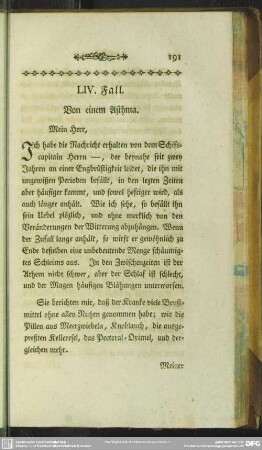 191
LIV. Fall.
Von einem Asthma.
Mein Herr,
Ich habe die Nachricht erhalten von dem Schiffs-
capitain Herrn —, der beynahe seit zwey
Jahren an einer Engbrüstigkeit leidet, die ihn mit
ungewissen Perioden befällt, in den letzten Zeiten
aber häufiger kommt, und sowol heftiger wird, als
auch länger anhält. Wie ich sehe, so befällt ihn
sein Uebel plötzlich, und ohne merklich von den
Veränderungen der Witterung abzuhängen. Wenn
der Zufall lange anhält, so wirft er gewöhnlich zu
Ende desselben eine unbedeutende Menge schäumig-
tes Schleims aus. In den Zwischenzeiten ist der
Athem nicht schwer, aber der Schlaf ist schlecht,
und der Magen häufigen Blähungen unterworfen.
Sie berichten mir, daß der Kranke viele Brust-
mittel ohne allen Nutzen genommen habe; wie die
Pillen aus Meerzwiebeln, Knoblauch, die ausge-
preßten Kelleresel, das Pectoral-Oximel, und der-
gleichen mehr.
Meiner